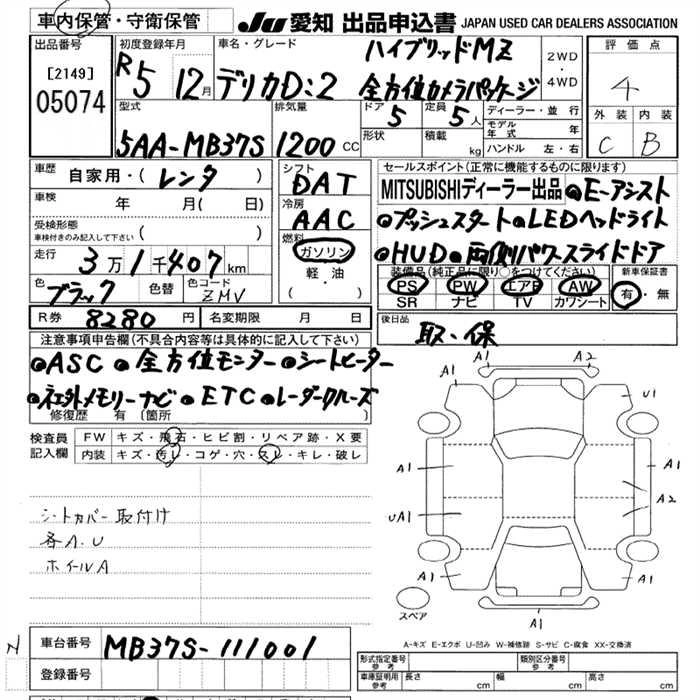 車内保管・守衛保管
JU 愛知 出品申込書 JAPAN USED CAR DEALERS ASSOCIATION
出品番号
[2149]
05074
初度登録年月
R5 12月
車名・グレード
ハイブリッドMZ
デリカD:2 全方位カメラパッケージ
2WD
・
4WD
評価点
4
外装 内装
C B
型式
5AA-MB37S
排気量
1200 CC
ドア
5
定員
5人
形状
積載
kg
ディーラー・並行
モデル
年式 年
ハンドル 左・右
車歴
自家用・(レンタ)
車検
年 月( 日)
受検形態
車検付きのみ記入して下さい ( )
走行
3万1千407km
色
ブラック
色替
色コード
ZMV
R券 8280円
名変期限 月 日
シフト
DAT
冷房
AAC
燃料
ガソリン
軽・油
( )
セールスポイント(正常に機能するものに限ります)
MITSUBISHIディーラー出品 ●E-アシスト
●プッシュスタート●LEDヘッドライト
●HUD●両側パワースライドドア
装備品(純正品に限り○をつけてください)
PS PW エアB AW
SR ナビ TV カワシート
新車保証書
有・無
後日品
取・保
注意事項申告欄(不具合内容等は具体的に記入して下さい)
●ASC ●全方位モニター ●シートヒーター
●社外メモリーナビ ●ETC ●レーダークルーズ
修復歴 有 〔箇所 〕
検査員
記入欄
FW キズ・飛石・ヒビ割・リペア跡・X要
内装 キズ・汚レ・コゲ・穴・スレ・キレ・破レ
シートカバー取付け
各A.U
ホイールA
A1 A2
A1 U1
A1 A1
A2
UA1
A1 A1
スペア
A1
A-キズ E-エクボ U-凹み W-補修跡 S-サビ C-腐食 XX-交換済
車台番号 MB37S-111001
登録番号
形式指定番号
参考
類別区分番号
参考
車庫証明用
参考
長さ cm
幅 cm
高さ cm